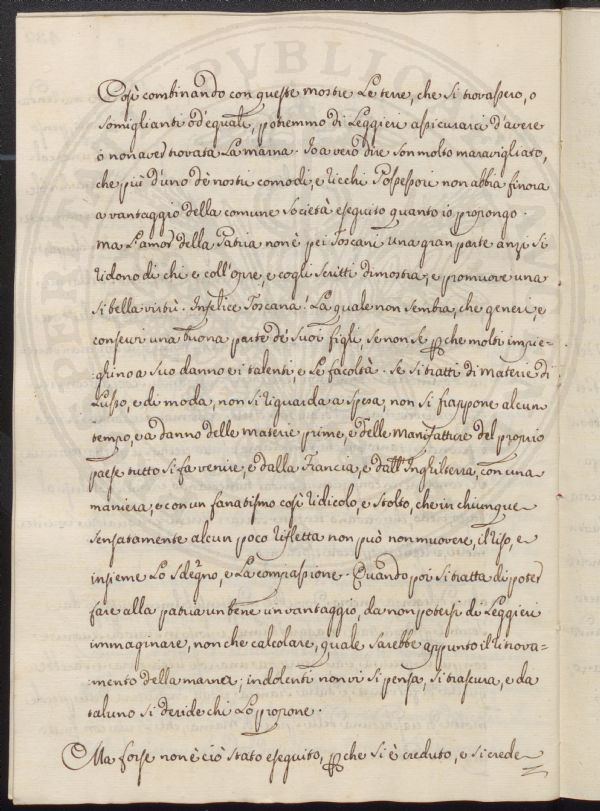 Così combinando con queste mostre le terre, che si trovassero, o
somiglianti od'eguali, potremmo di leggieri assicurarci d'avere
ò non aver trovata la marna. Io a vero dire son molto maravigliato,
che più d'uno dè nostri comodi, e ricchi Possessori non abbia finora
a vantaggio della comune Società eseguito quanto io propongo.
Ma l'amor della Patria non è pei Toscani una gran parte anzi si
ridono di chi e coll'opre, e cogli scritti dimostra, e promuove una
si bella virtù. Infelice Toscana! La quale non sembra, che generi, e
conservi una buona parte dè suoi figli, se non se perche molti impie=
ghino a suo danno e i talenti, e le facoltà. Se si tratti di materie di
Lusso, e di moda, non si riguarda a spesa, non si frappone alcun
tempo, e a danno delle materie prime, e delle Manifatture del proprio
paese tutto si fa venire, e dalla Francia, e dall'Inghilterra, con una
maniera, e con un fanatismo così ridicolo, e stolto, che in chiunque
sensatamente alcun poco rifletta non può non muovere, il riso, e
insieme lo sdegno, e la compassione. Quando poi si tratta di poter
fare alla patria un bene un vantaggio, da non potersi di leggieri
immaginare, non che calcolare, quale sarebbe appunto il ritrova=
mento della marna; indolenti non vi si pensa, si trascura, e da
taluno si deride chi lo propone.
Ma forse non è ciò stato eseguito, perche si è creduto, e si crede